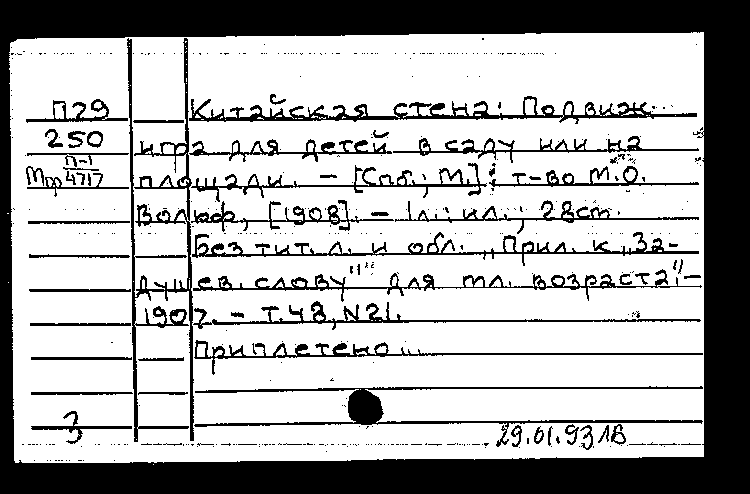 П29 Китайская стена: Подвиж.
250 игра для детей в саду или на
Мрр П-1/4717 площади. – [Спб.; М.]: т-во М.О.
Вольф, [1908]. – 1л.: ил.; 28см.
Без тит. л. и обл. „Прил. к „За-
душев. слову"" для мл. возраста". –
1907. – Т.48, N21.
Приплетено...
3 29.01.93 ЛВ